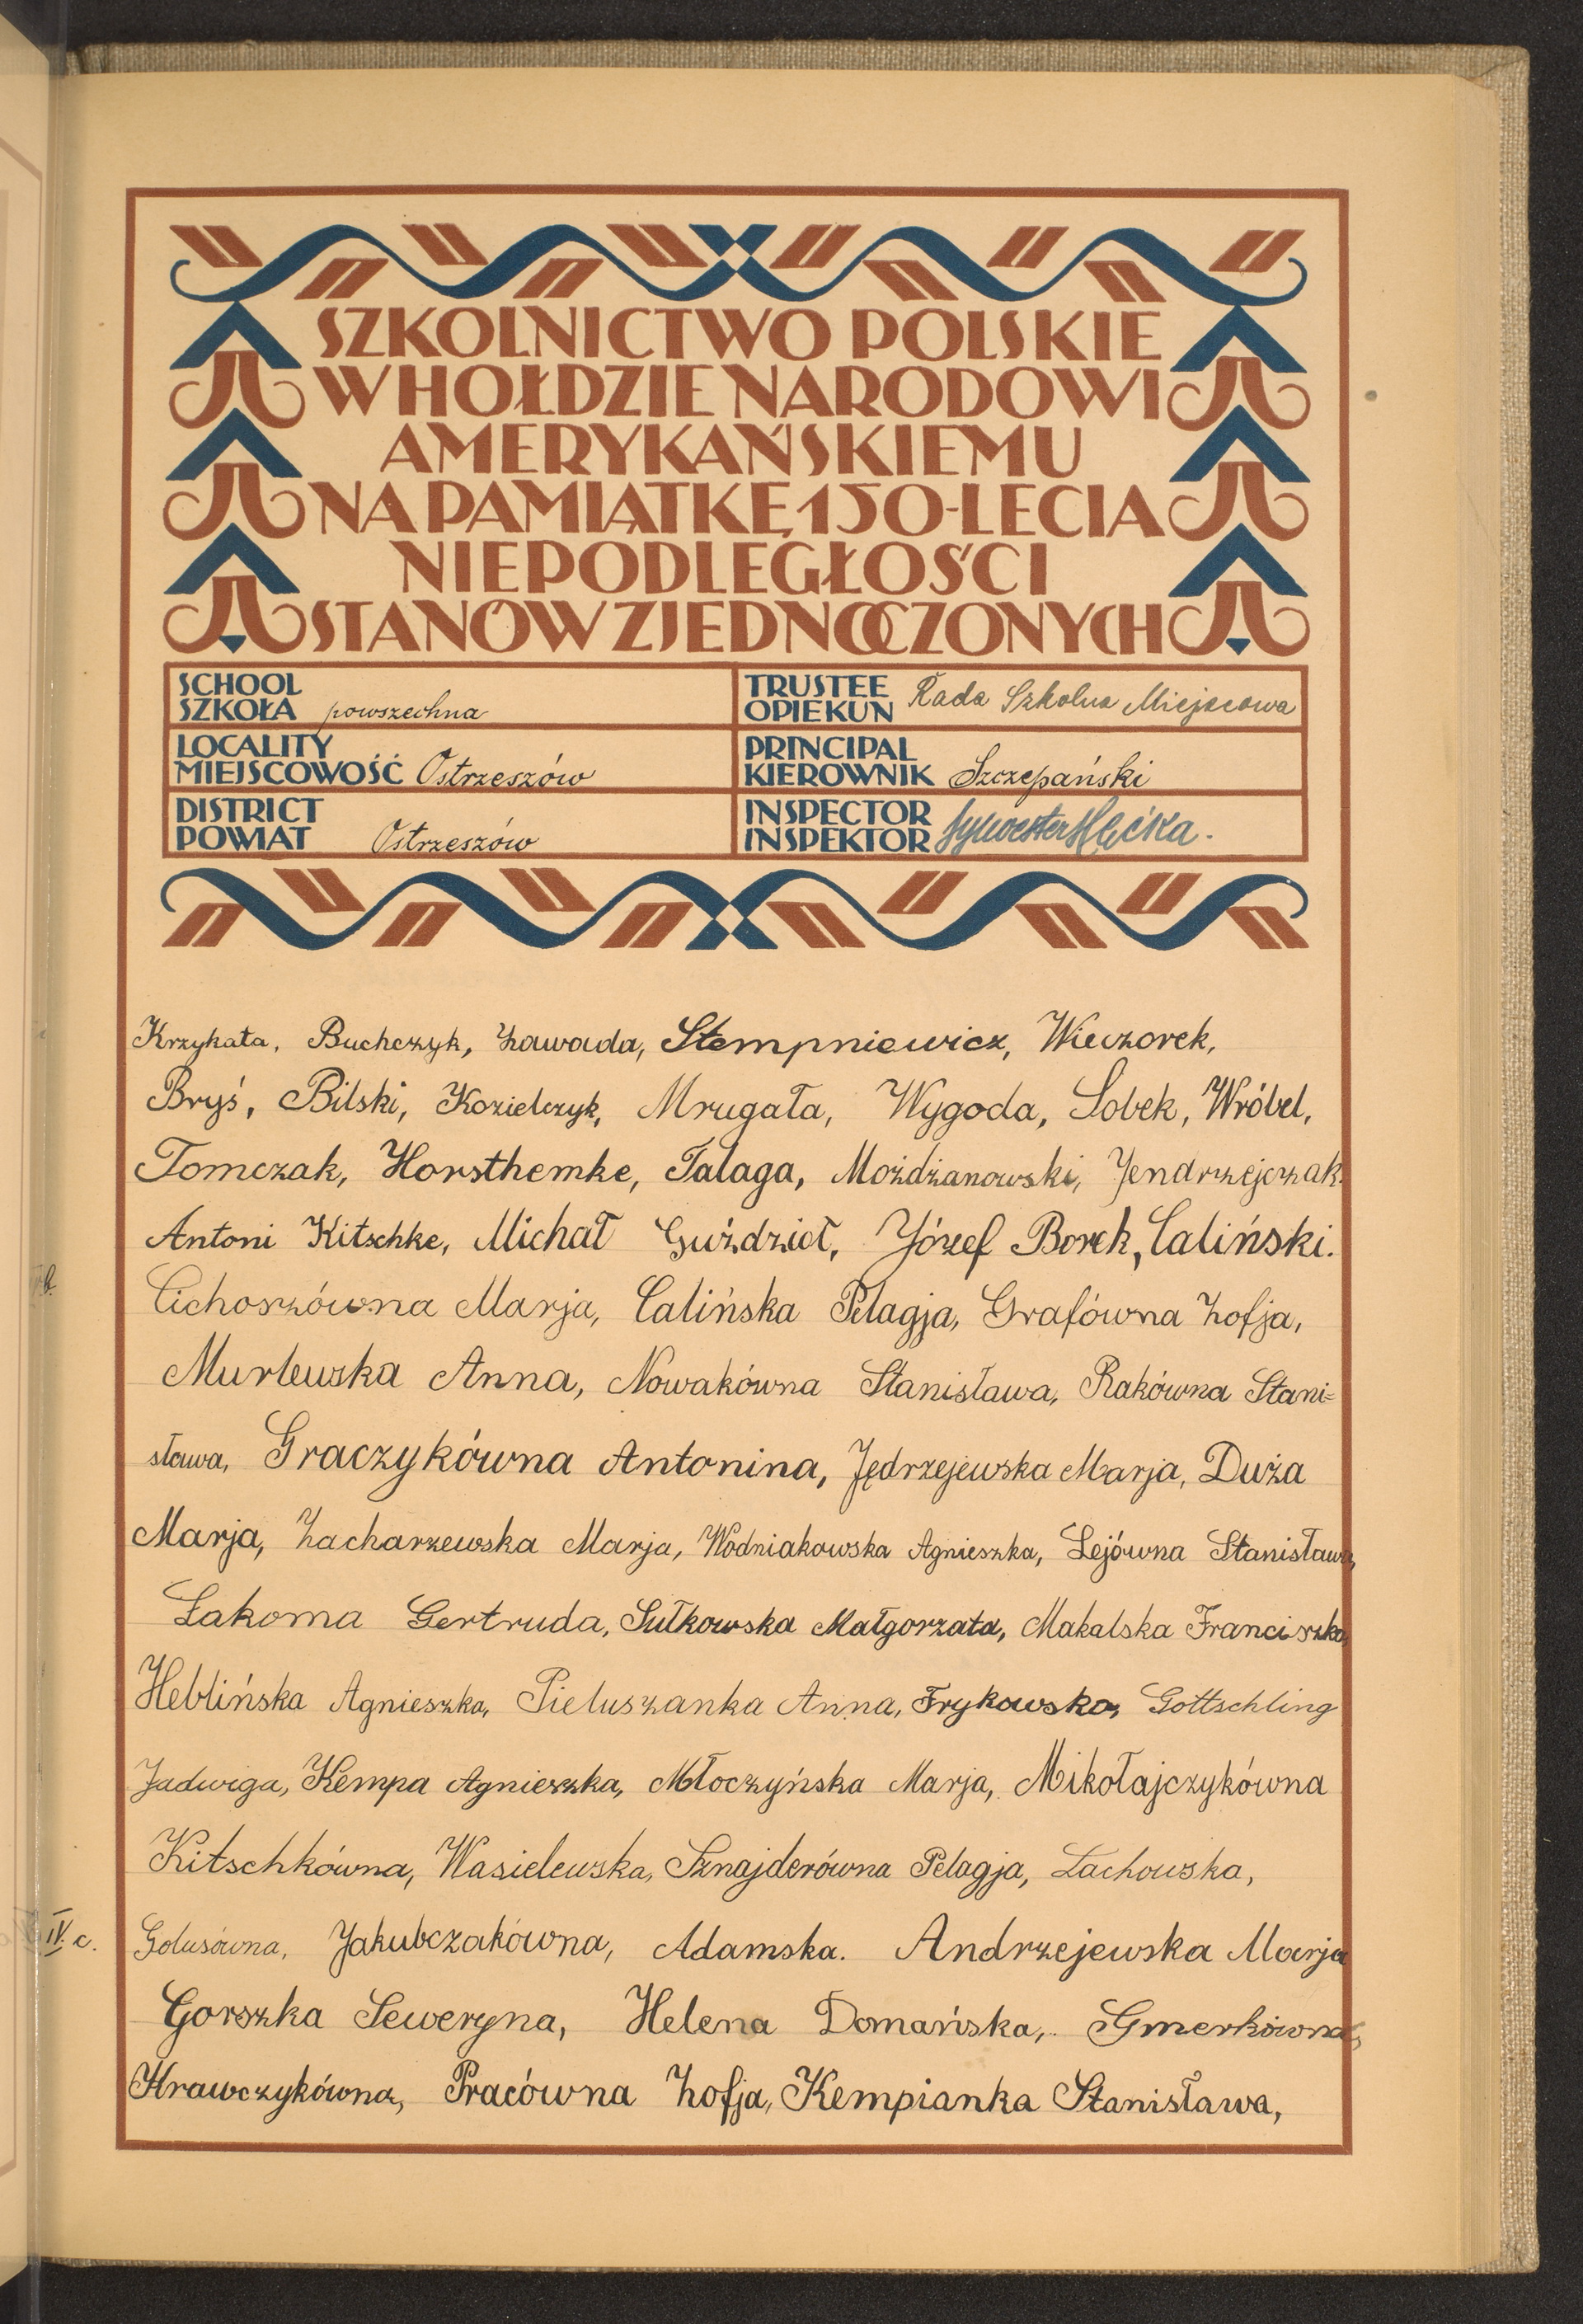 SZKOLNICTWO POLSKIE
W HOŁDZIE NARODOWI
AMERYKAŃSKIEMU
NA PAMIĄTKĘ 150-LECIA
NIEPODLEGŁOŚCI
STANÓW ZJEDNOCZONYCH
SCHOOL
SZKOŁA powszechna
TRUSTEE
OPIEKUN Rada Szkolna Miejscowa
LOCALITY
MIEJSCOWOŚĆ Ostrzeszów
PRINCIPAL
KIEROWNIK Szczepański
DISTRICT
POWIAT Ostrzeszów
INSPECTOR
INSPEKTOR Sylwester
Krzykała, Buchczyk, Zawada, Stempniewicz, Wieczorek,
Bryś, Bilski, Kozielczyk, Mrugała, Wygoda, Sobek, Wróbel,
Tomczak, Horsthemke, Talaga, Możdżanowski, Jendrzejczak
Antoni Kitschke, Michał Guździoł, Józef Borek, Caliński.
Cichoszówna Marja, Calińska Pelagja, Grafówna Zofja,
Murlewska Anna, Nowakówna Stanisława, Rakówna Stani=
sława, Graczykówna Antonina, Jędrzejewska Marja, Duża
Marja, Zacharzewska Marja, Wodniakowska Agnieszka, Lejówna Stanisława,
Łakoma Gertruda, Sułkowska Małgorzata, Makalska Franciszka,
Heblińska Agnieszka, Pieluszanka Anna, Frykowska, Gottschling
Jadwiga, Kempa Agnieszka, Młoczyńska Marja, Mikołajczykówna
Kitschkówna, Wasielewska, Sznajderówna Pelagja, Lachowska,
IV. c. Golusówna, Jakubczakówna, Adamska. Andrzejewska Marja
Gorszka Seweryna, Helena Domańska, Gmerkówna,
Krawczykówna, Pracówna Zofja, Kempianka Stanisława,